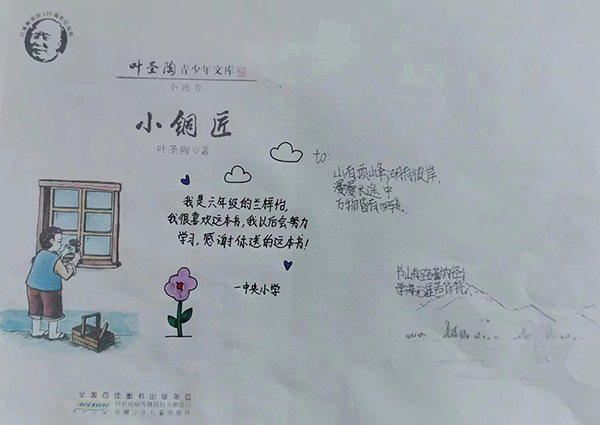 叶圣陶青少年文库
小说卷
小铜匠
叶圣陶◎著
我是六年级的兰样怡,
我很喜欢这本书,我以后会努力
学习,感谢你送的这本书!
—中央小学
to:
山有顶峰,湖有彼岸,
漫漫长途中
万物皆有回转
书山有路勤为径,
学海无涯苦作舟
全国百佳图书出版单位
时代出版传媒股份有限公司
安徽少年儿童出版社